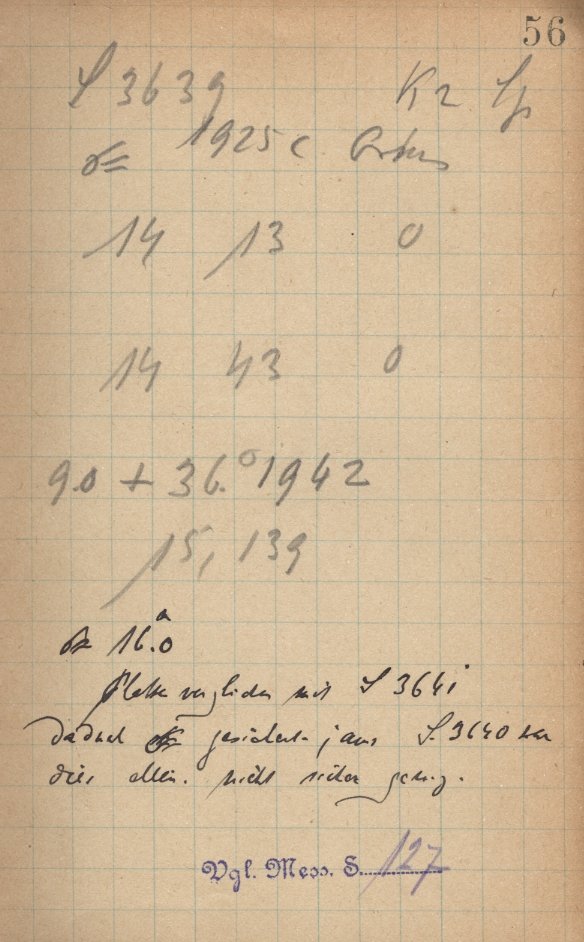 56
S 3639 K2
1925 c Orkus
14 13 0
14 43 0
9.0 + 36.° 1942
15, 139
16.0
Platte verglichen mit S 3641
dadurch gesichert; aus S. 3640 war
dies allein nicht sicher genug.
Vgl. Mess. S. 127